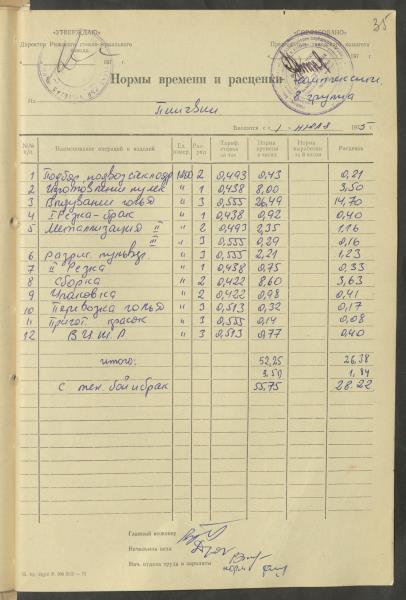 35
«УТВЕРЖДАЮ»
«СОГЛАСОВАНО»
Директор Рижского
завода
197 г.
197 г.
Нормы времени и расценки
8 группа
На Пингвин
Вводятся с « 1 - 1975 г.
№№ п/п Наименование операций и изделий Ед. измер. Раз-ряд Тариф. ставка за час Норма времени в часах Норма выработки за 8 часов Расценка
1 Подбор, подвоз 1000 2 0,493 0,43 0,21
2 Изготовление пулек " 1 0,438 8,00 3,50
3 Выдувание " 3 0,555 26,49 14,70
4 I Резка - брак " 1 0,438 0,92 0,40
5 Металлизация II " 2 0,493 2,35 1,16
III " 3 0,555 0,29 0,16
6 " 3 0,555 2,21 1,23
7 II Резка " 1 0,438 0,75 0,33
8 Сборка " 2 0,422 8,60 3,63
9 Упаковка " 2 0,422 0,98 0,41
10 Перевозка " 3 0,513 0,32 0,17
11 Пригот. красок " 3 0,555 0,14 0,08
12 " 3 0,513 0,77 0,40
итого: 52,25 26,38
3,50 1,84
с тех. бой и брак 55,75 28.22
Главный инженер
Начальник цеха
Нач. отдела труда и зарплаты